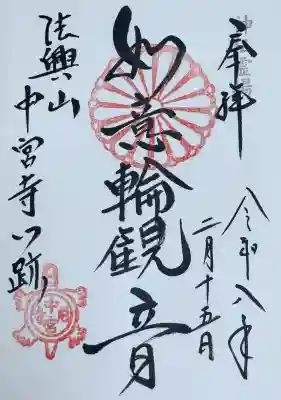 奉拝
令和八年
二月十五日
如意輪観音
法興山
中宮寺門跡
中宮